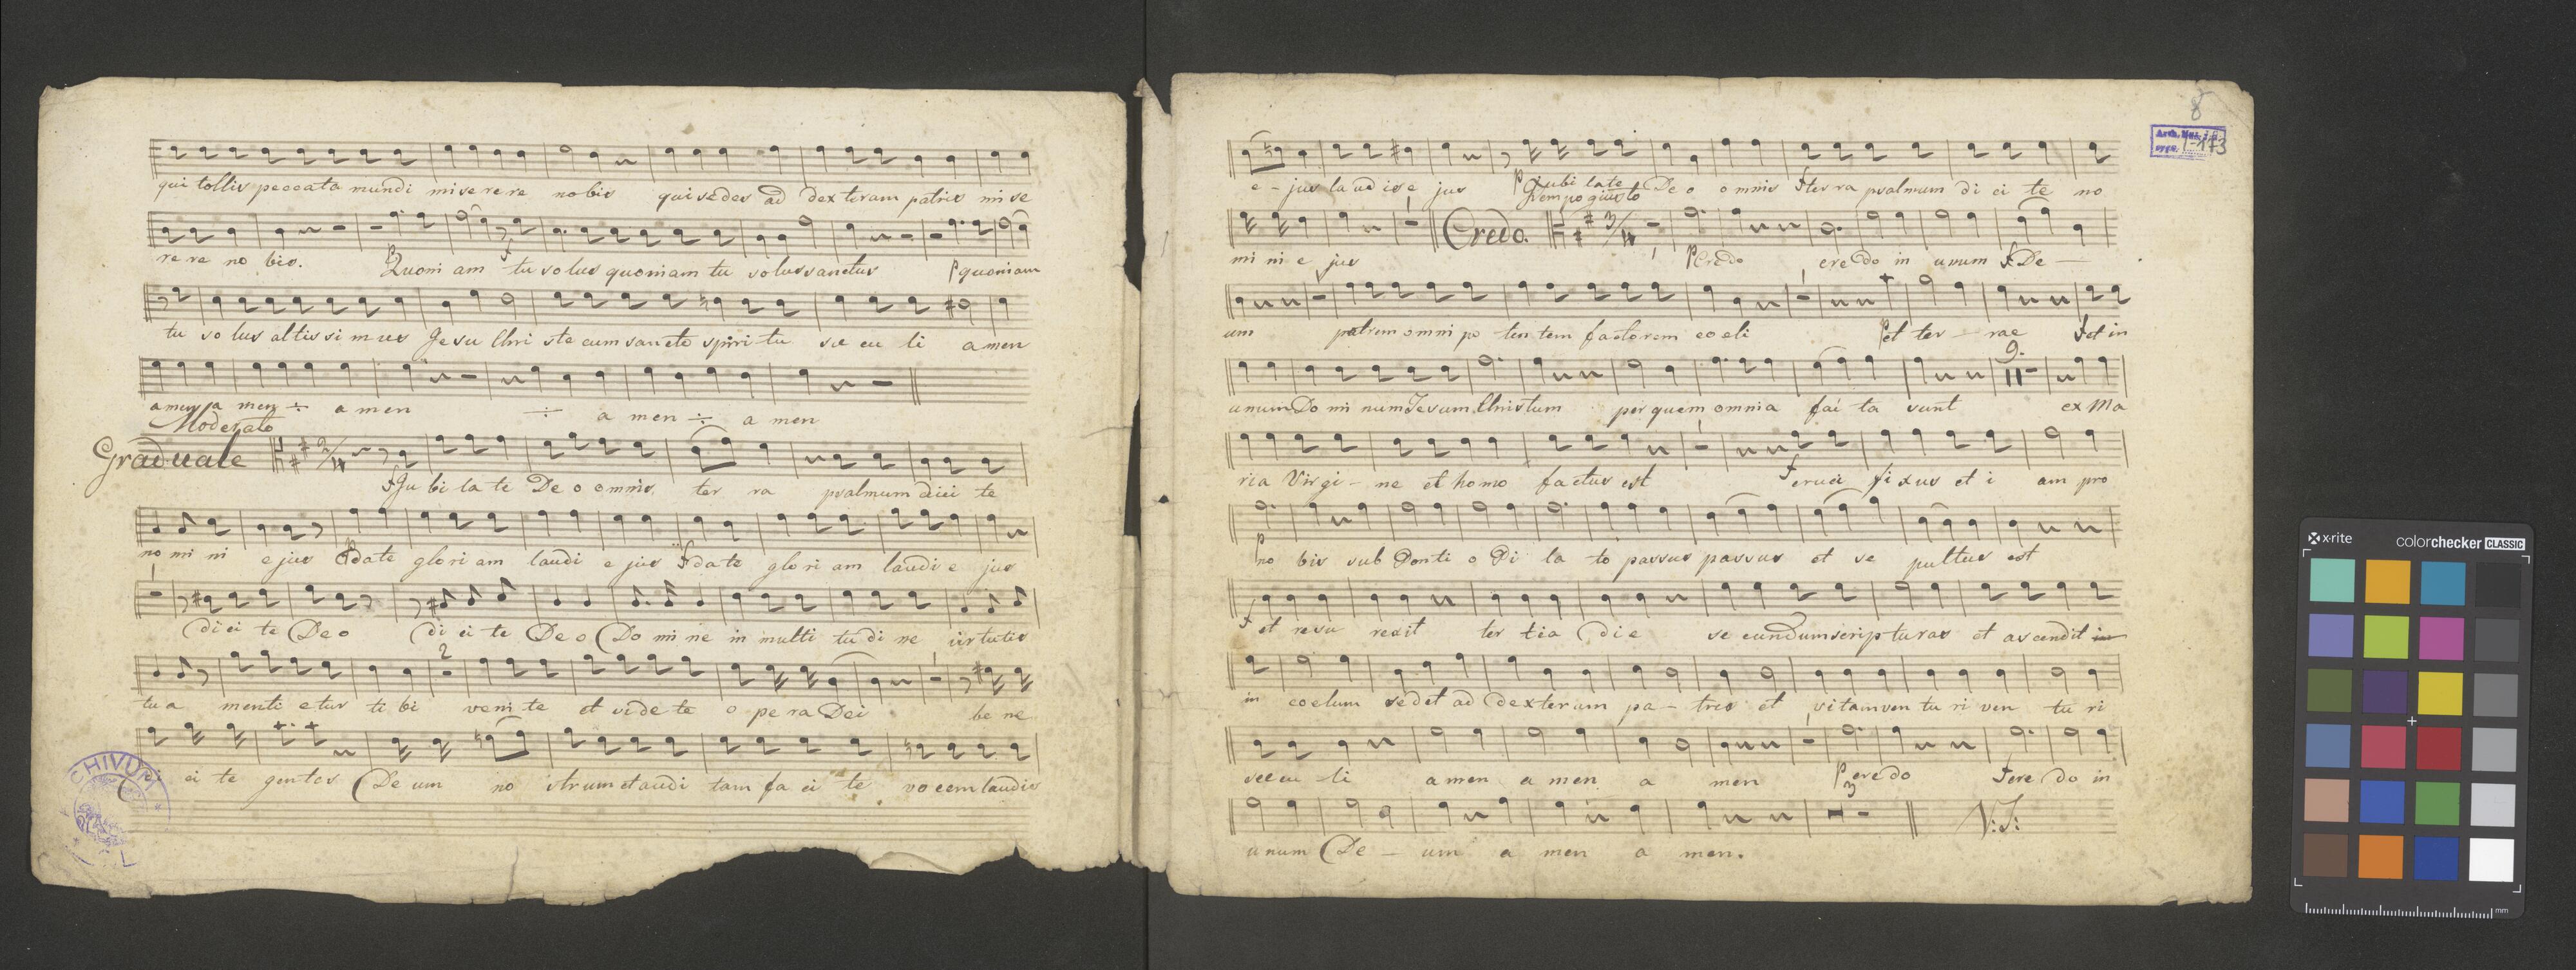 qui tollis peccata mundi miserere nobis qui sedes ad dexteram patris mi se
re re no bis. Quoni am tu solus quoniam tu solus sanctus p quoniam
tu so lus altissi mus Jesu Chri ste cum sancto spiri tu sae cu li amen
amen a men ÷ a men ÷ a men ÷ a men
Moderato
Graduale
f Ju bi la te De o omnis ter ra psalmum dici te
no mi ni ejus date glo ri am laudi e jus f date glo ri am laudi e jus
di ci te Deo di ci te Deo Do mi ne in multi tu di ne virtutis
tu a menti etur ti bi veni te et vide te o pe ra Dei be ne
ci te gentes De um no strum et audi tam fa ci te vo cem laudis
CHIVUM
8
Arch. Muz. J. G.
sygn. I-173
e - jus laudis e jus p Jubi late Deo omnis f ter ra psalmum di ci te no
Tempo giusto
mi ni e jus Credo. p Credo cre do in unum f De —
um patrem omni po ten tem factorem coeli p et ter — rae f et in
9.
unum Do mi num Jesum Christum per quem omnia fac ta sunt ex Ma
ria Virgi - ne et homo factus est f cruci fi xus et i am pro
no bis sub Ponti o Pi la to passus passus et se pultus est
f et resu rexit ter tia die se cundum scripturas et ascendit in
in coelum sedet ad dexteram pa - tris et vitam ven tu ri ven tu ri
saecu - li amen a men a men p cre do f cre do in
3
unum De — um a men a men.
V: S:
x-rite
colorchecker CLASSIC
mm